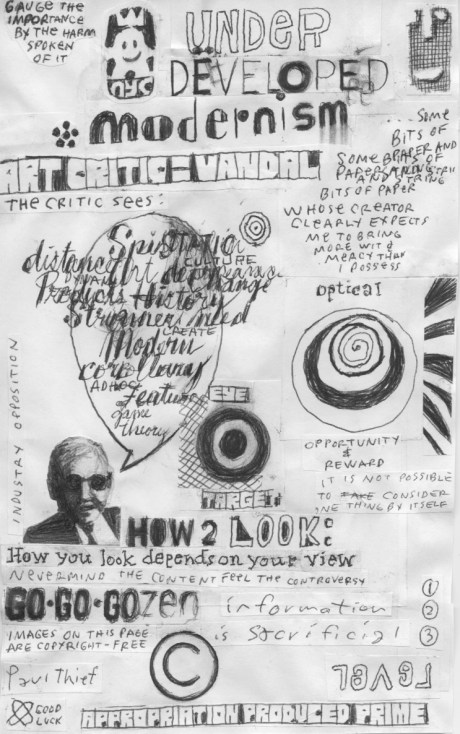 GAUGE THE
IMPORTANCE
BY THE HARM
SPOKEN
OF IT
nyc
UNDER
DEVELOPED
modernism
ART CRITIC=VANDAL
THE CRITIC SEES:
...SOME
BITS OF
PAPER AND
SOME
BITS OF PAPER
WHOSE CREATOR
CLEARLY EXPECTS
ME TO BRING
MORE WIT &
MERCY THAN
I POSSESS
CULTURE
distance
Change
Predicts History
CREATE
Modern
corollaries
AD HOC
Feature
Game
theory
INDUSTRY OPPOSITION
optical
EYE
TARGET
OPPORTUNITY
&
REWARD
IT IS NOT POSSIBLE
TO CONSIDER
ONE THING BY ITSELF
HOW 2 LOOK:
How you look depends on your view
NEVERMIND THE CONTENT FEEL THE CONTROVERSY
GO·GO·GOzen information
is sacrificial
① 
②
③
IMAGES ON THIS PAGE
ARE COPYRIGHT-FREE
©
Paul Thief
LEVEL
GOOD
LUCK
APPROPRIATION PRODUCED PRIME